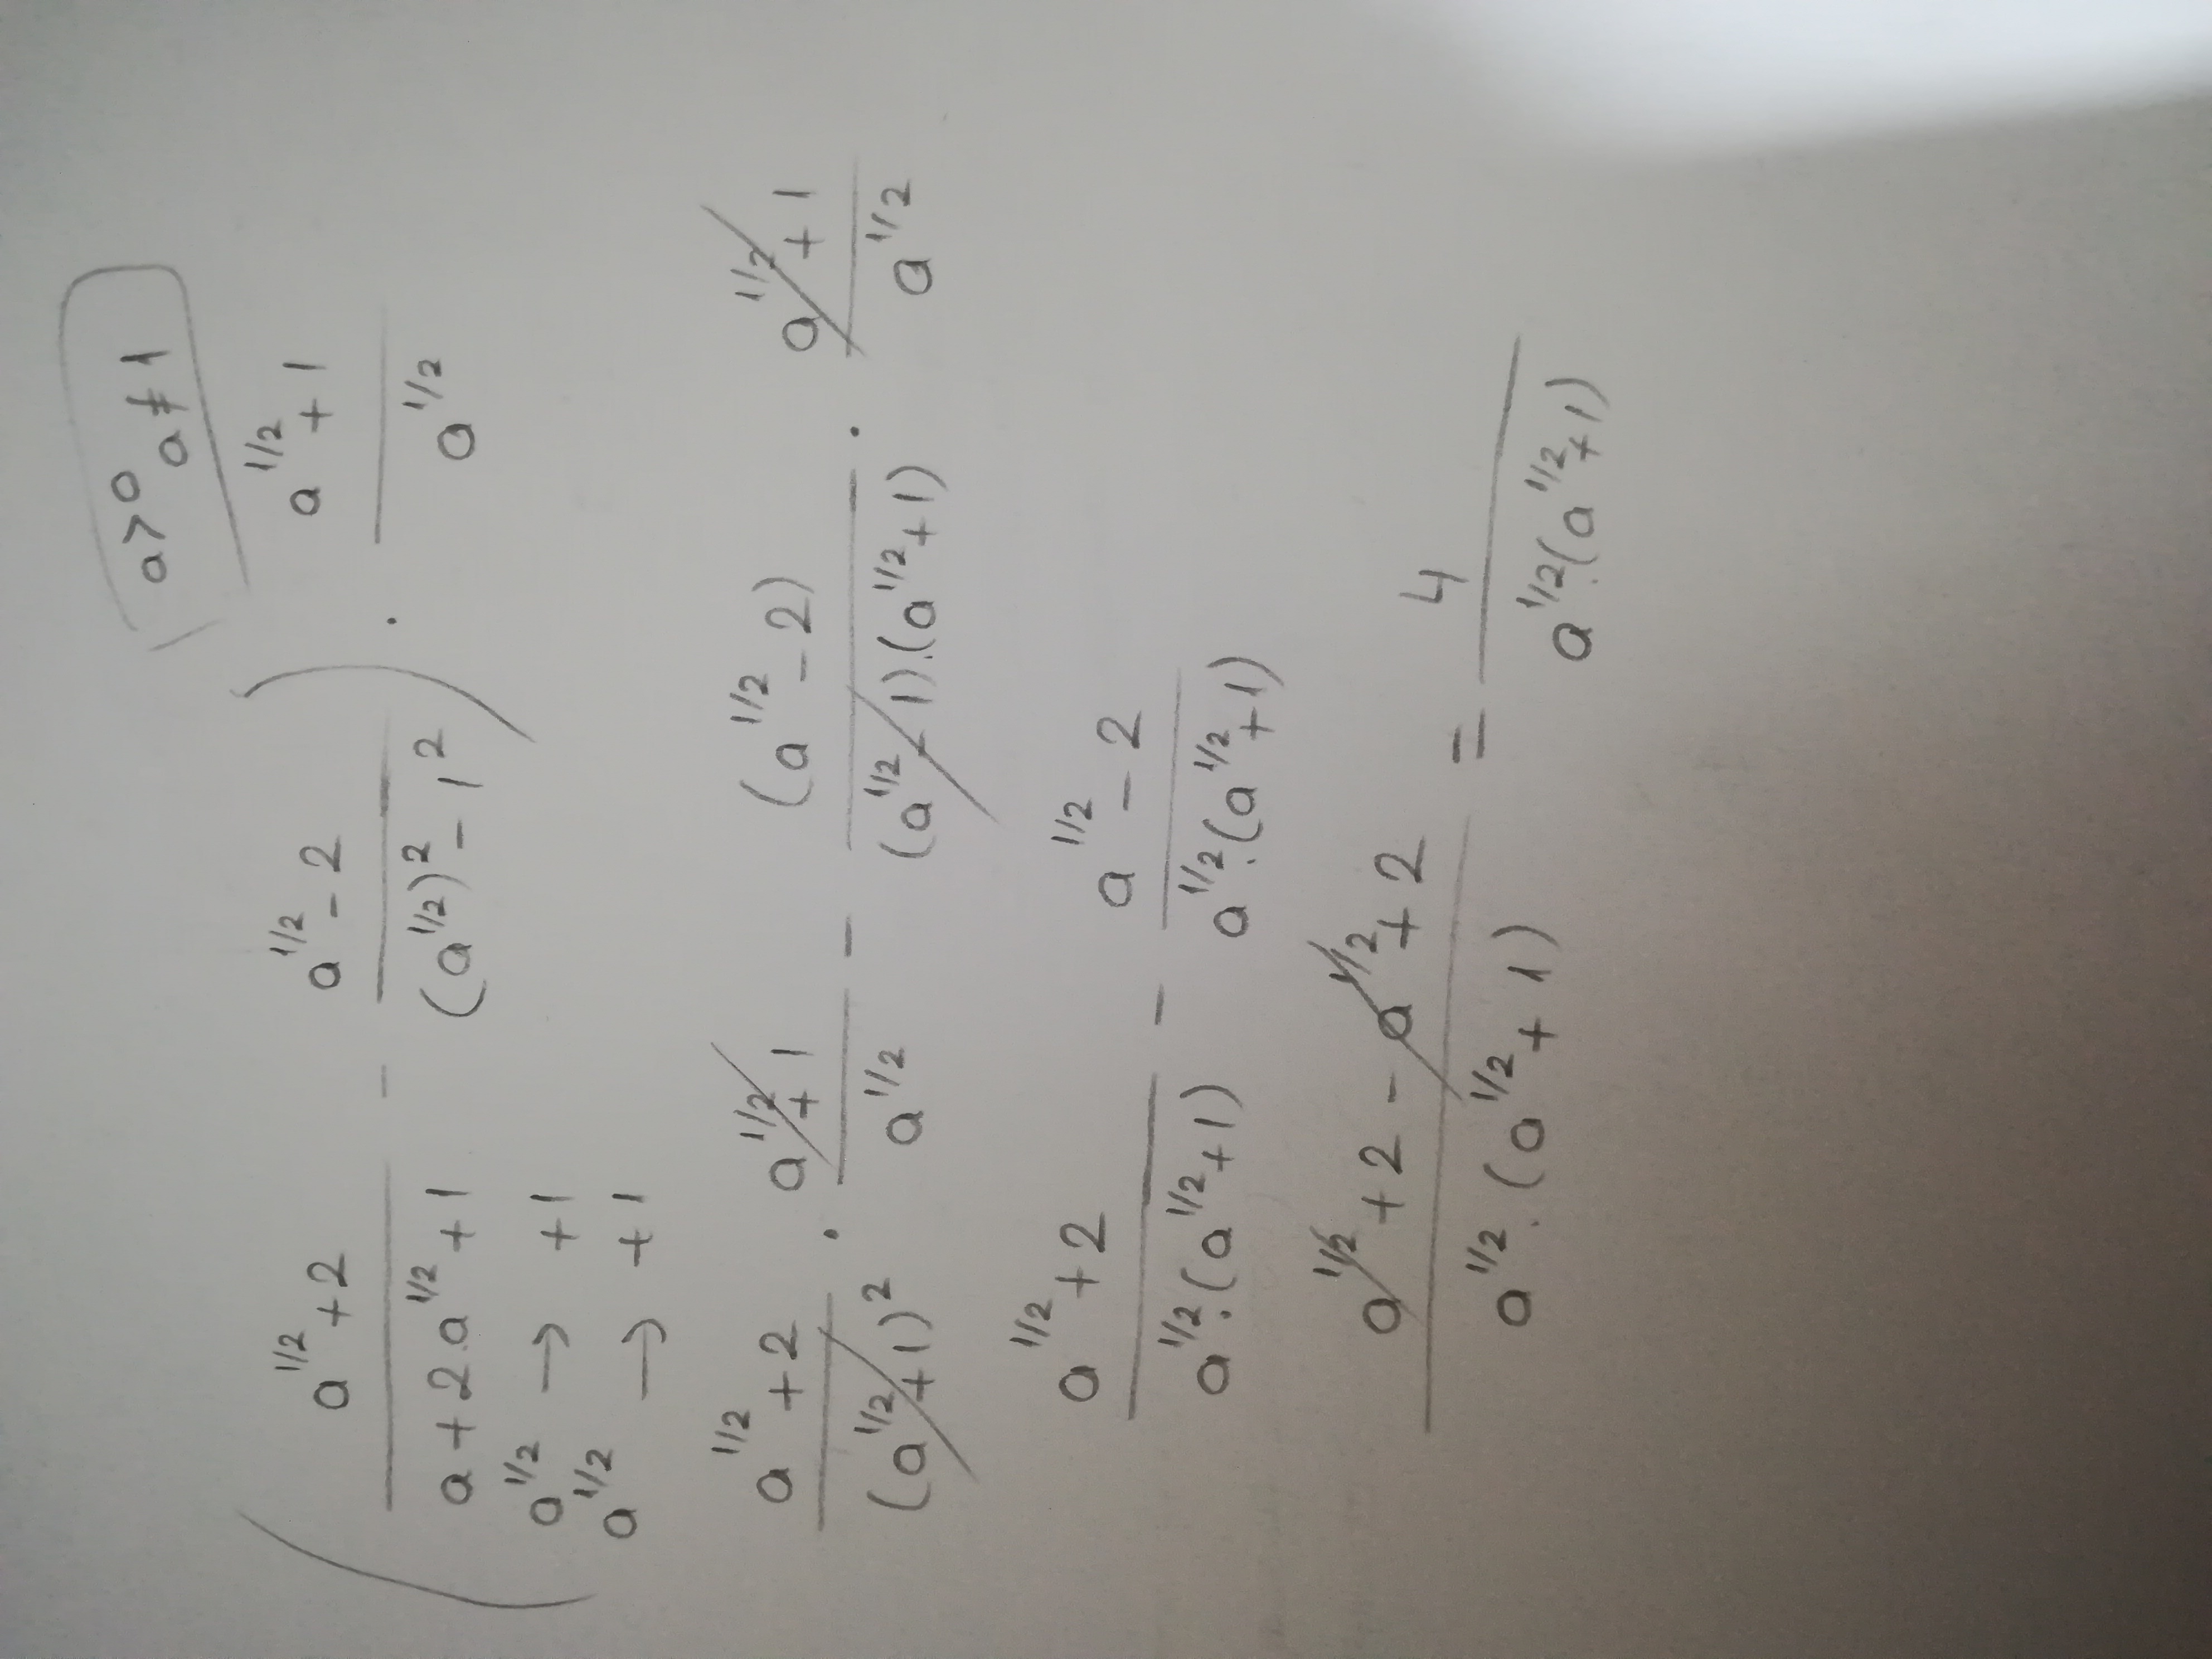 a>0 a≠1
( (a^1/2 + 2)/(a + 2.a^1/2 + 1) - (a^1/2 - 2)/((a^1/2)^2 - 1^2) ) . (a^1/2 + 1)/(a^1/2)
a^1/2 → +1
a^1/2 → +1
(a^1/2 + 2)/((a^1/2 + 1)^2) . (a^1/2 + 1)/(a^1/2) - (a^1/2 - 2)/((a^1/2 - 1).(a^1/2 + 1)) . (a^1/2 + 1)/(a^1/2)
(a^1/2 + 2)/(a^1/2.(a^1/2 + 1)) - (a^1/2 - 2)/(a^1/2.(a^1/2 + 1))
(a^1/2 + 2 - a^1/2 + 2)/(a^1/2.(a^1/2 + 1)) = 4/(a^1/2.(a^1/2 + 1))